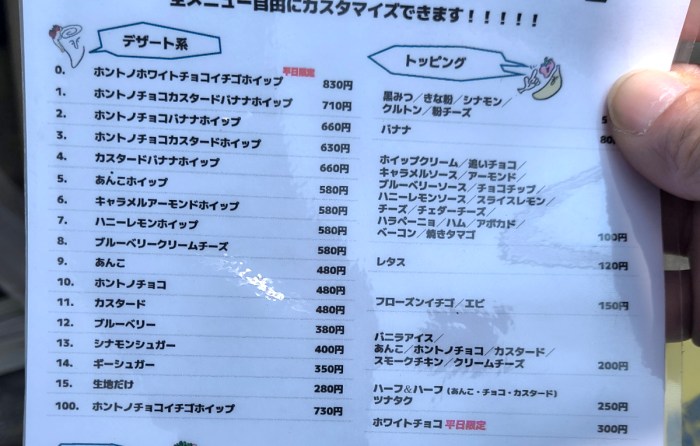 全メニュー自由にカスタマイズできます！！！！！
デザート系
0. ホントノホワイトチョコイチゴホイップ 平日限定 830円
1. ホントノチョコカスタードバナナホイップ 710円
2. ホントノチョコバナナホイップ 660円
3. ホントノチョコカスタードホイップ 630円
4. カスタードバナナホイップ 660円
5. あんこホイップ 580円
6. キャラメルアーモンドホイップ 580円
7. ハニーレモンホイップ 580円
8. ブルーベリークリームチーズ 580円
9. あんこ 480円
10. ホントノチョコ 480円
11. カスタード 480円
12. ブルーベリー 380円
13. シナモンシュガー 400円
14. ギーシュガー 350円
15. 生地だけ 280円
100. ホントノチョコイチゴホイップ 730円
トッピング
黒みつ／きな粉／シナモン／
クルトン／粉チーズ
バナナ 80
ホイップクリーム／追いチョコ／
キャラメルソース／アーモンド／
ブルーベリーソース／チョコチップ／
ハニーレモンソース／スライスレモン／
チーズ／チェダーチーズ／
ハラペーニョ／ハム／アボカド／
ベーコン／焼きタマゴ 100円
レタス 120円
フローズンイチゴ／エビ 150円
バニラアイス／
あんこ／ホントノチョコ／カスタード／
スモークチキン／クリームチーズ 200円
ハーフ&ハーフ（あんこ・チョコ・カスタード）
ツナタク 250円
ホワイトチョコ 平日限定 300円